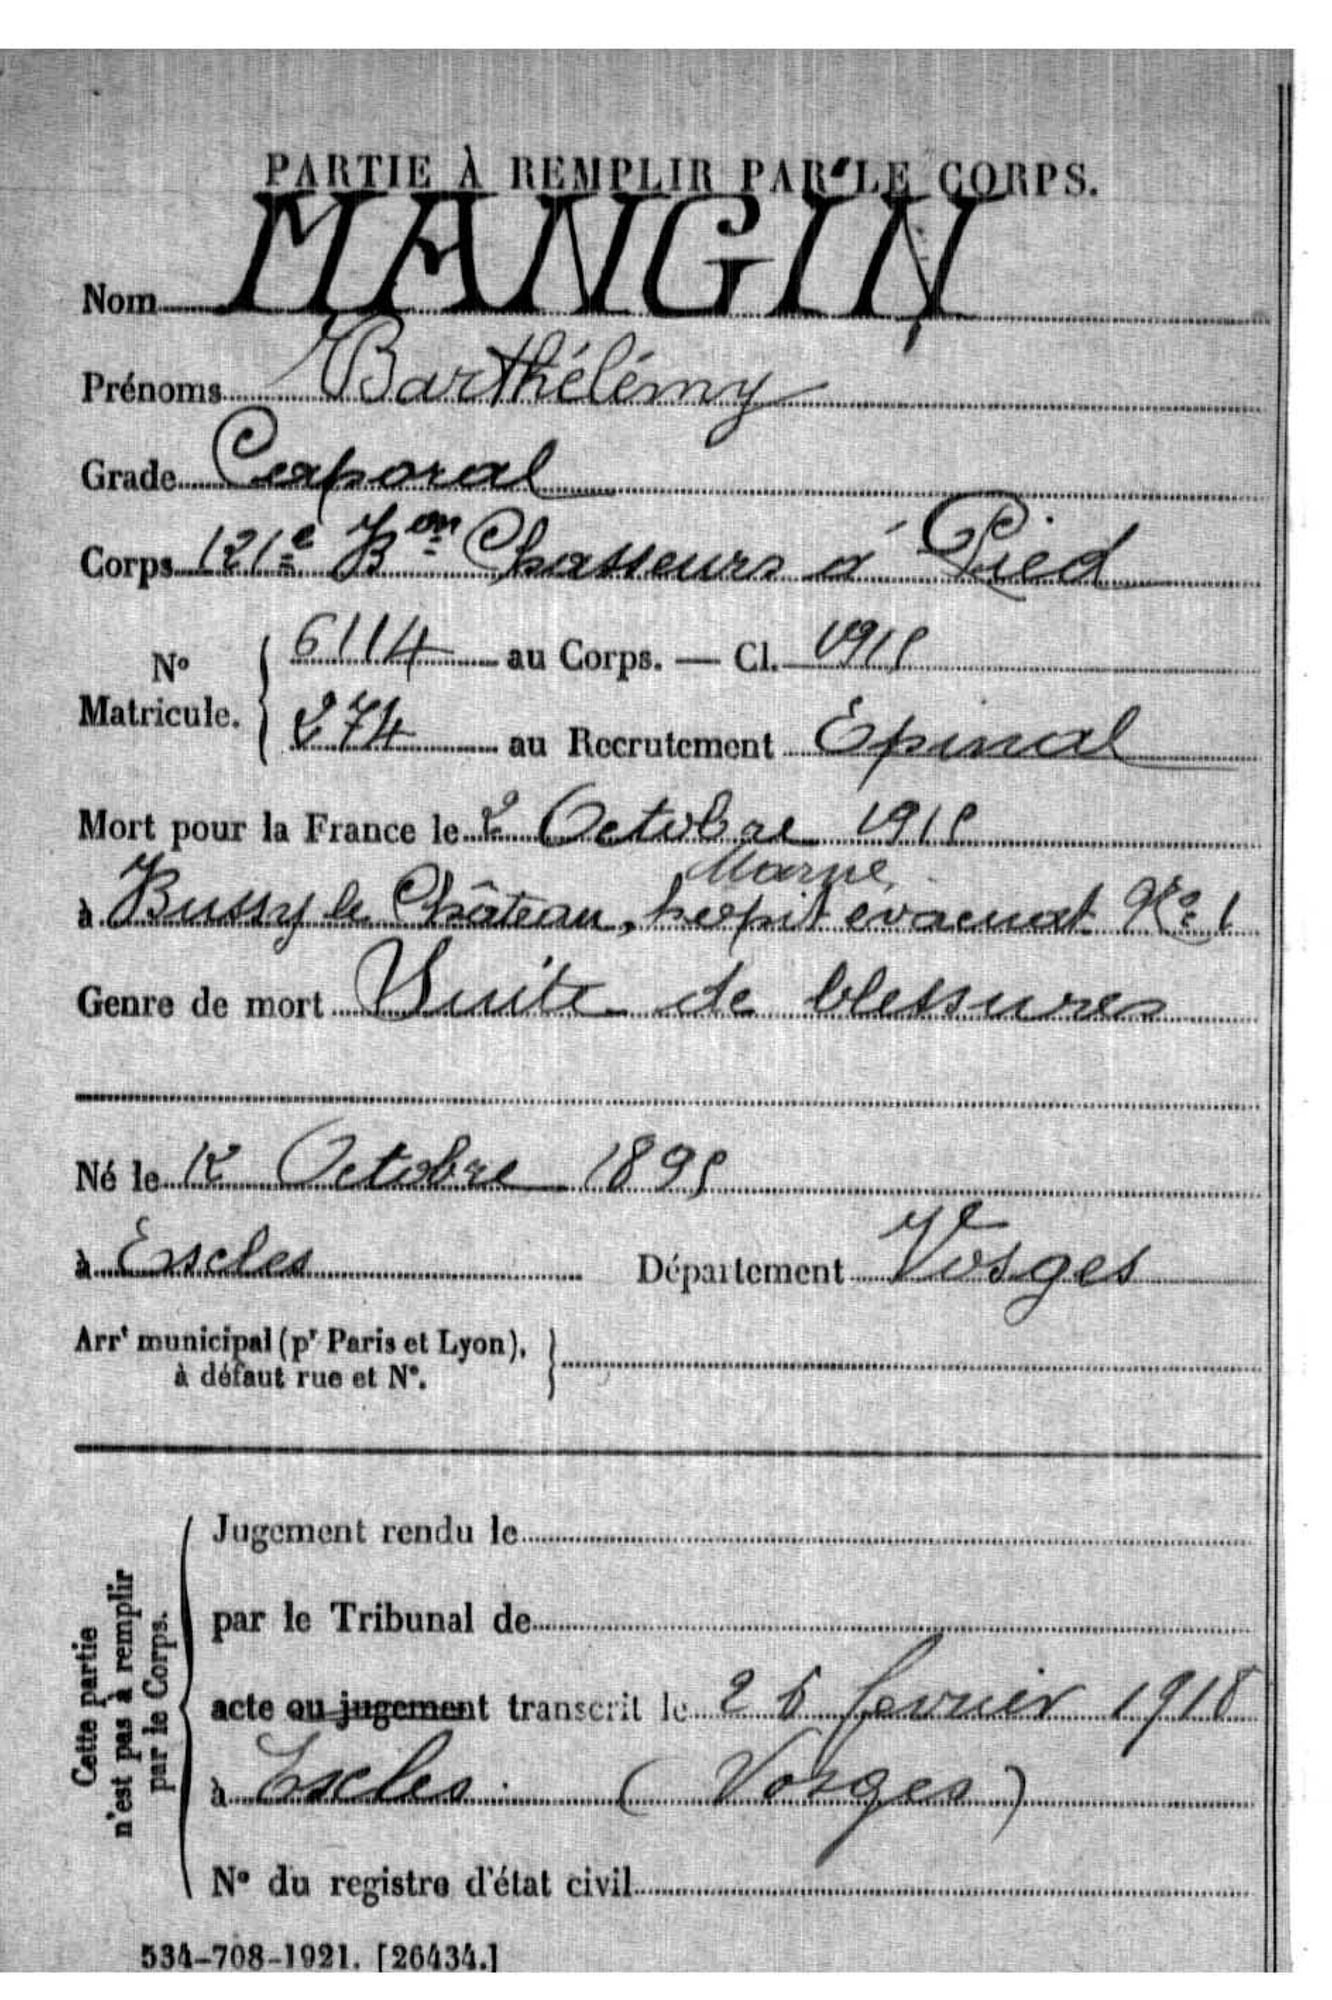 PARTIE À REMPLIR PAR LE CORPS.
Nom MANGIN
Prénoms Barthélémy
Grade Caporal
Corps 121e Bon Chasseurs à Pied
N° Matricule. { 6114 au Corps. — Cl. 1915
274 au Recrutement Epinal
Mort pour la France le 2 Octobre 1915
Marne,
à Bussy le Château, hopit evacuat No 1
Genre de mort Suite de blessures
Né le 12 Octobre 1895
à Escles Département Vosges
Arrt municipal (pr Paris et Lyon),
à défaut rue et N°.
Cette partie
n'est pas à remplir
par le Corps.
Jugement rendu le
par le Tribunal de
acte ou jugement transcrit le février 1918
à Escles. (Vosges)
N° du registre d'état civil
534-708-1921. [26434.]